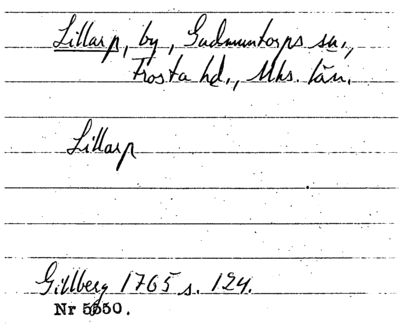 Lillarp, by, Gudmuntorps sn.,
Frosta hd., Mks. län.
Lillarp
Gillberg 1765 s. 124.
Nr 5550.